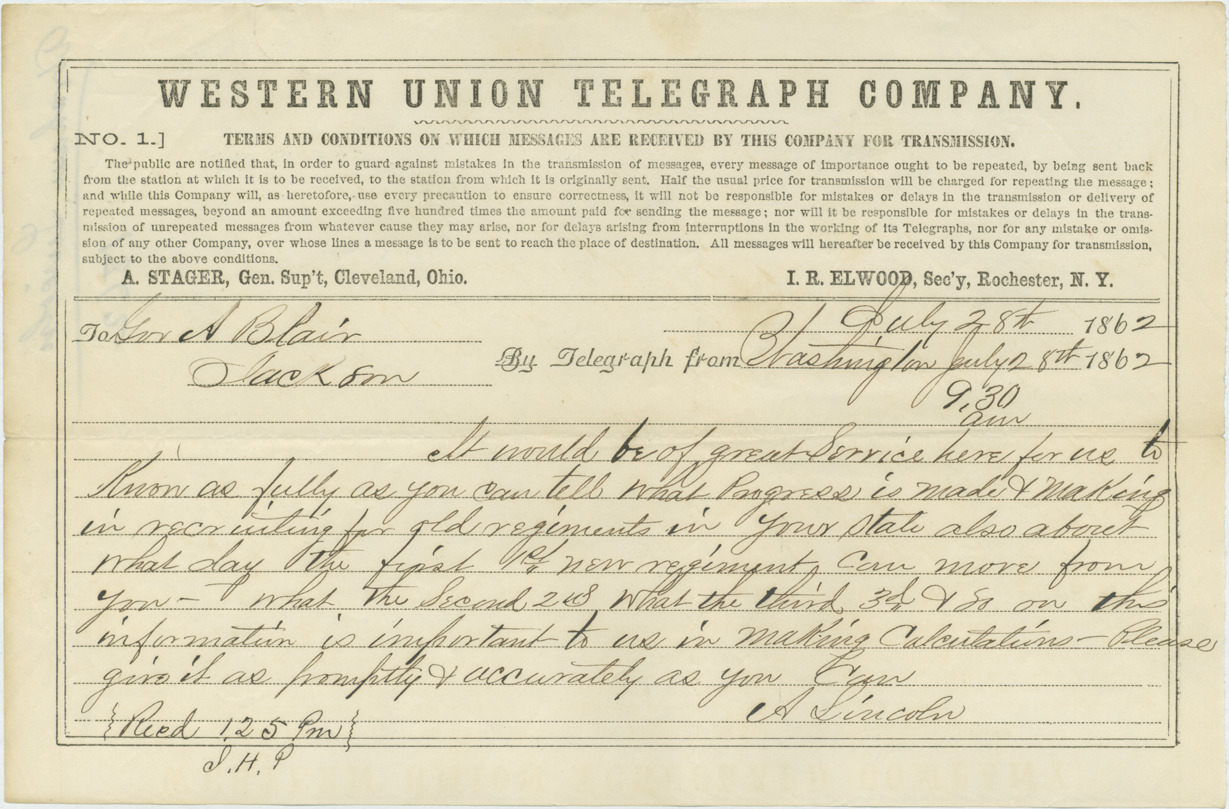 WESTERN UNION TELEGRAPH COMPANY.
NO. 1.] TERMS AND CONDITIONS ON WHICH MESSAGES ARE RECEIVED BY THIS COMPANY FOR TRANSMISSION.
The public are notified that, in order to guard against mistakes in the transmission of messages, every message of importance ought to be repeated, by being sent back
from the station at which it is to be received, to the station from which it is originally sent. Half the usual price for transmission will be charged for repeating the message;
and while this Company will, as heretofore, use every precaution to ensure correctness, it will not be responsible for mistakes or delays in the transmission or delivery of
repeated messages, beyond an amount exceeding five hundred times the amount paid for sending the message; nor will it be responsible for mistakes or delays in the trans-
mission of unrepeated messages from whatever cause they may arise, nor for delays arising from interruptions in the working of its Telegraphs, nor for any mistake or omis-
sion of any other Company, over whose lines a message is to be sent to reach the place of destination. All messages will hereafter be received by this Company for transmission,
subject to the above conditions.
A. STAGER, Gen. Sup't, Cleveland, Ohio. I. R. ELWOOD, Sec'y, Rochester, N. Y.
July 28th 1862
To Gov A Blair
By Telegraph from Washington July 28th 1862
Jackson
9,30
am
It would be of great Service here for us to
Know as fully as you can tell what Progress is made & making
in recruiting for old regiments in your state also about
what day the first 1st new regiment can move from
you - what the Second 2nd what the third 3d & so on this
information is important to us in making Calculations - Please
give it as promptly & accurately as you Can
A Lincoln
{Recd 1,25 Pm}
J.H.P